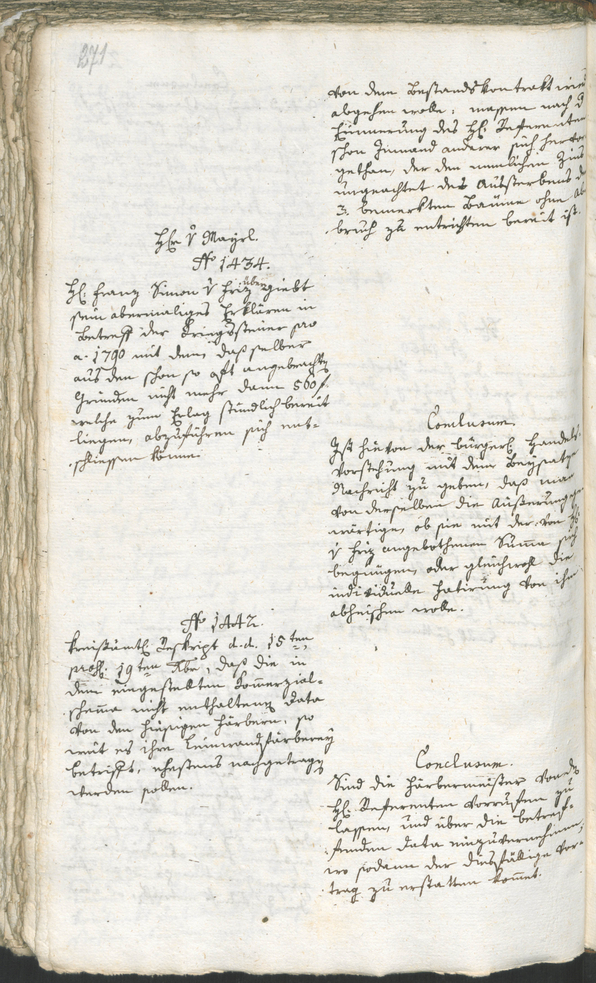 271
von dem Bestandskontrakt wied
abgehen wolle; massen nach d
Erinnerung des H: Referenten
schon Jemand anderer sich hervor
gethan, der den nemlichen Zins
ungeachtet des Aussterbens de
3. bemerkten Bäume ohne Ab
bruch zu entrichten bereit ist.
Hr v Mayrl.
No 1434.
H: Franz Simon v Friz übergiebt
sein abermaliges Erklären in
Betreff der Kriegssteuer pro
a. 1790 mit dem, daß selber
aus den schon so oft angebrachten
Gründen nicht mehr dann 500 f.
welche zum Erlag stündlich bereit
liegen, abzuführen sich ent-
schliessen könne.
Conclusum.
Ist hievon der bürgerl. Handels-
Vorstehung mit dem Beysatze
Nachricht zu geben, daß man
von derselben die Äußerung ge
wärtige, ob sie mit der von H:
v Friz angebothenen Summe sich
begnügen, oder gleichwohl die
individuelle Fatirung von ihm
abheischen wolle.
No 1442.
Kreisämtl. Reskript d. d. 15ten
praes. 19ten Xbr, daß die in
dem eingestellten Kommerzial-
schema nicht enthaltenen Data
von den hiesigen Färbern, so
weit es ihre Leinwandfärberey
betrifft, ehestens nachgetragen
werden sollen.
Conclusum.
Sind die Färbermeister von dem
H: Referenten vorrufen zu
lassen, und über die betref-
fenden Data einzuvernehmen,
wo sodann der diesfällige Vor-
trag zu erstatten kommt.